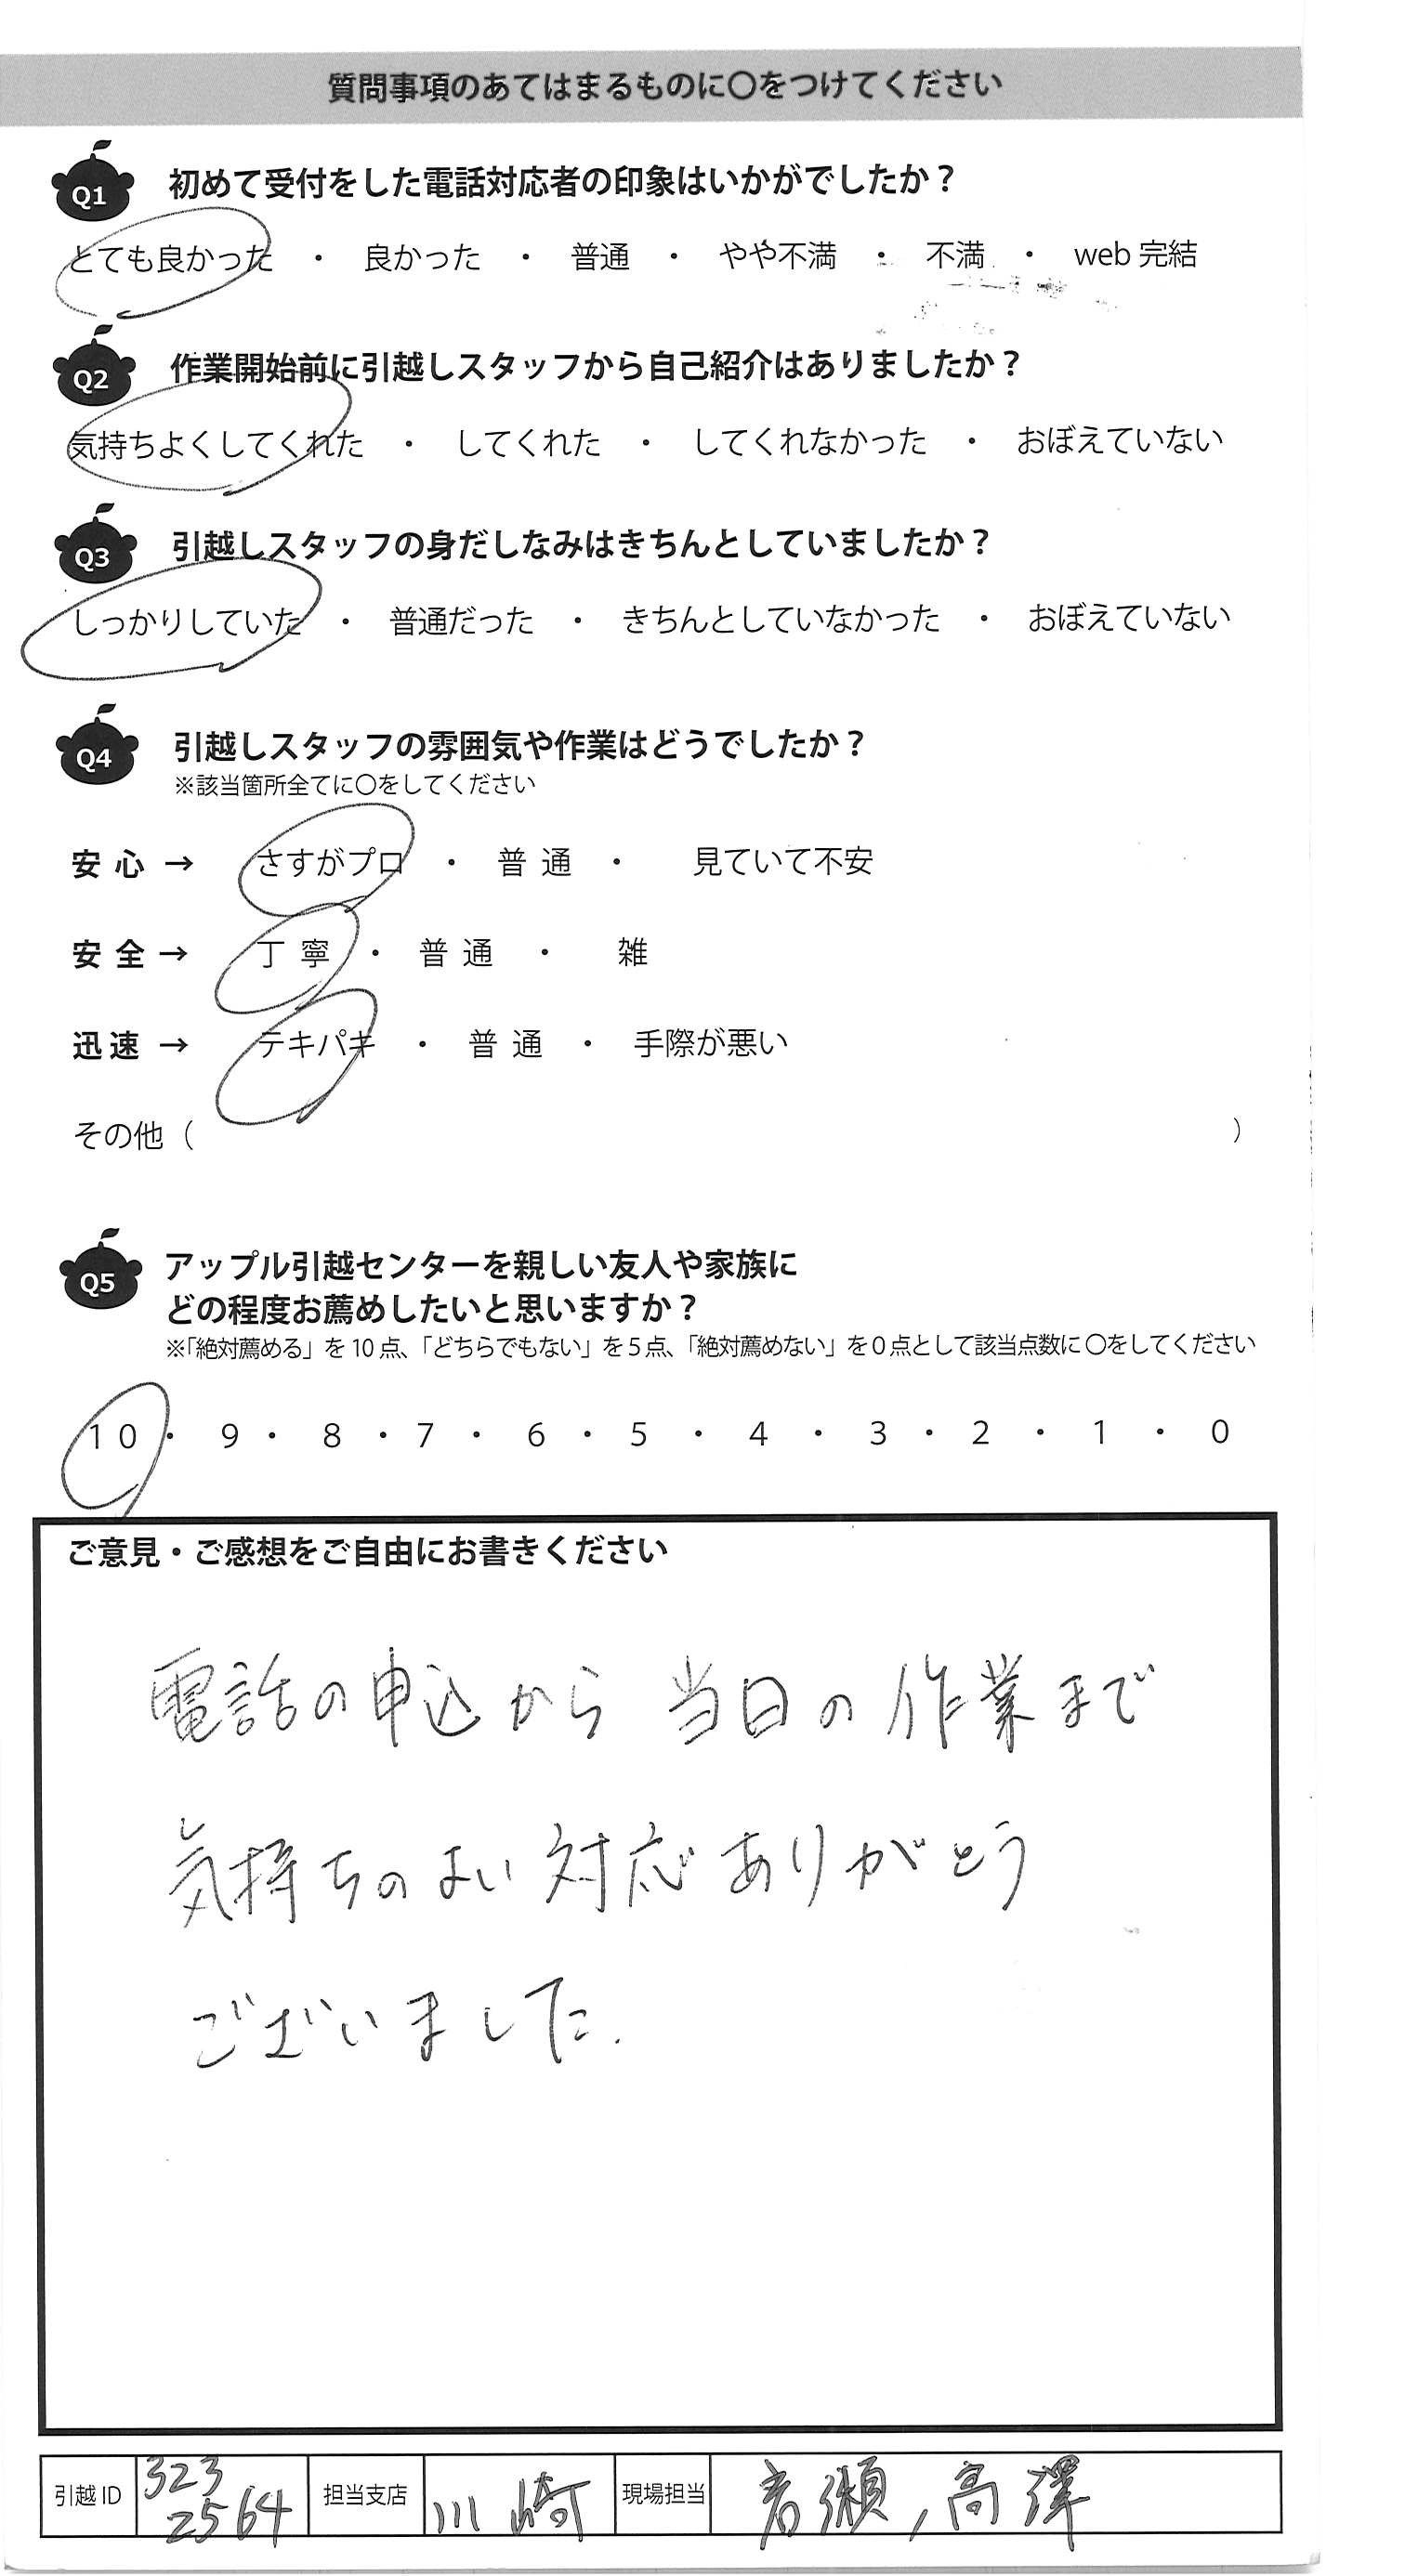 質問事項のあてはまるものに〇をつけてください
Q1 初めて受付をした電話対応者の印象はいかがでしたか？
とても良かった ・ 良かった ・ 普通 ・ やや不満 ・ 不満 ・ web 完結
Q2 作業開始前に引越しスタッフから自己紹介はありましたか？
気持ちよくしてくれた ・ してくれた ・ してくれなかった ・ おぼえていない
Q3 引越しスタッフの身だしなみはきちんとしていましたか？
しっかりしていた ・ 普通だった ・ きちんとしていなかった ・ おぼえていない
Q4 引越しスタッフの雰囲気や作業はどうでしたか？
※該当箇所全てに〇をしてください
安心 → さすがプロ ・ 普通 ・ 見ていて不安
安全 → 丁寧 ・ 普通 ・ 雑
迅速 → テキパキ ・ 普通 ・ 手際が悪い
その他（ ）
Q5 アップル引越センターを親しい友人や家族に
どの程度お薦めしたいと思いますか？
※「絶対薦める」を10点、「どちらでもない」を5点、「絶対薦めない」を0点として該当点数に〇をしてください
10 ・ 9 ・ 8 ・ 7 ・ 6 ・ 5 ・ 4 ・ 3 ・ 2 ・ 1 ・ 0
ご意見・ご感想をご自由にお書きください
電話の申込から当日の作業まで
気持ちのよい対応ありがとう
ございました.
引越ID 323 2564 担当支店 川崎 現場担当 高澤